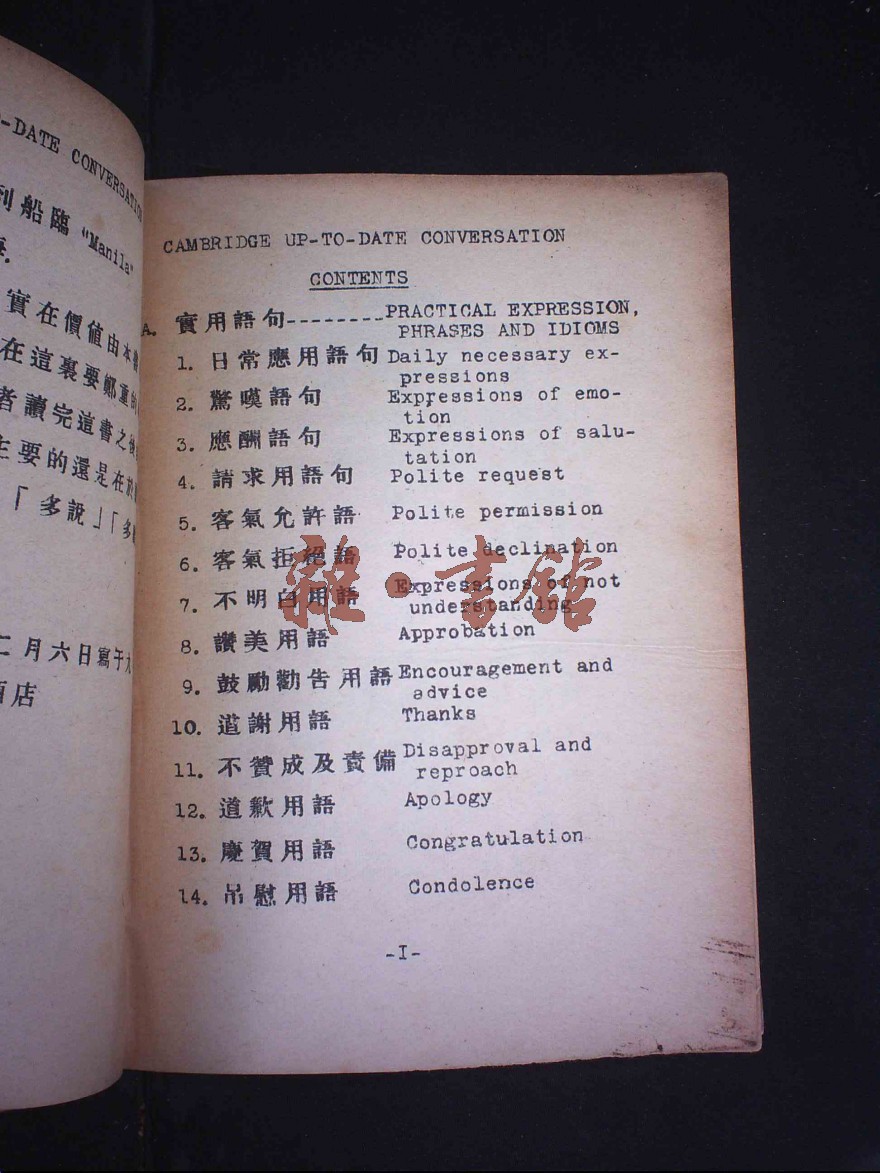 -DATE CONVERSATION
利船臨 "Manila"
實在價值由本
在這裏要鄭重
者讀完這書之後
主要的還是在於
「多說」「多
二月六日寫于
酒店
CAMBRIDGE UP-TO-DATE CONVERSATION
CONTENTS
A. 實用語句--------PRACTICAL EXPRESSION,
PHRASES AND IDIOMS
1. 日常應用語句 Daily necessary ex-
pressions
2. 驚嘆語句 Expressions of emo-
tion
3. 應酬語句 Expressions of salu-
tation
4. 請求用語句 Polite request
5. 客氣允許語 Polite permission
6. 客氣拒絕語 Polite declination
7. 不明白用語 Expressions of not
understanding
8. 讚美用語 Approbation
9. 鼓勵勸告用語 Encouragement and
advice
10. 道謝用語 Thanks
11. 不贊成及責備 Disapproval and
reproach
12. 道歉用語 Apology
13. 慶賀用語 Congratulation
14. 吊慰用語 Condolence
-I-
雜·書館